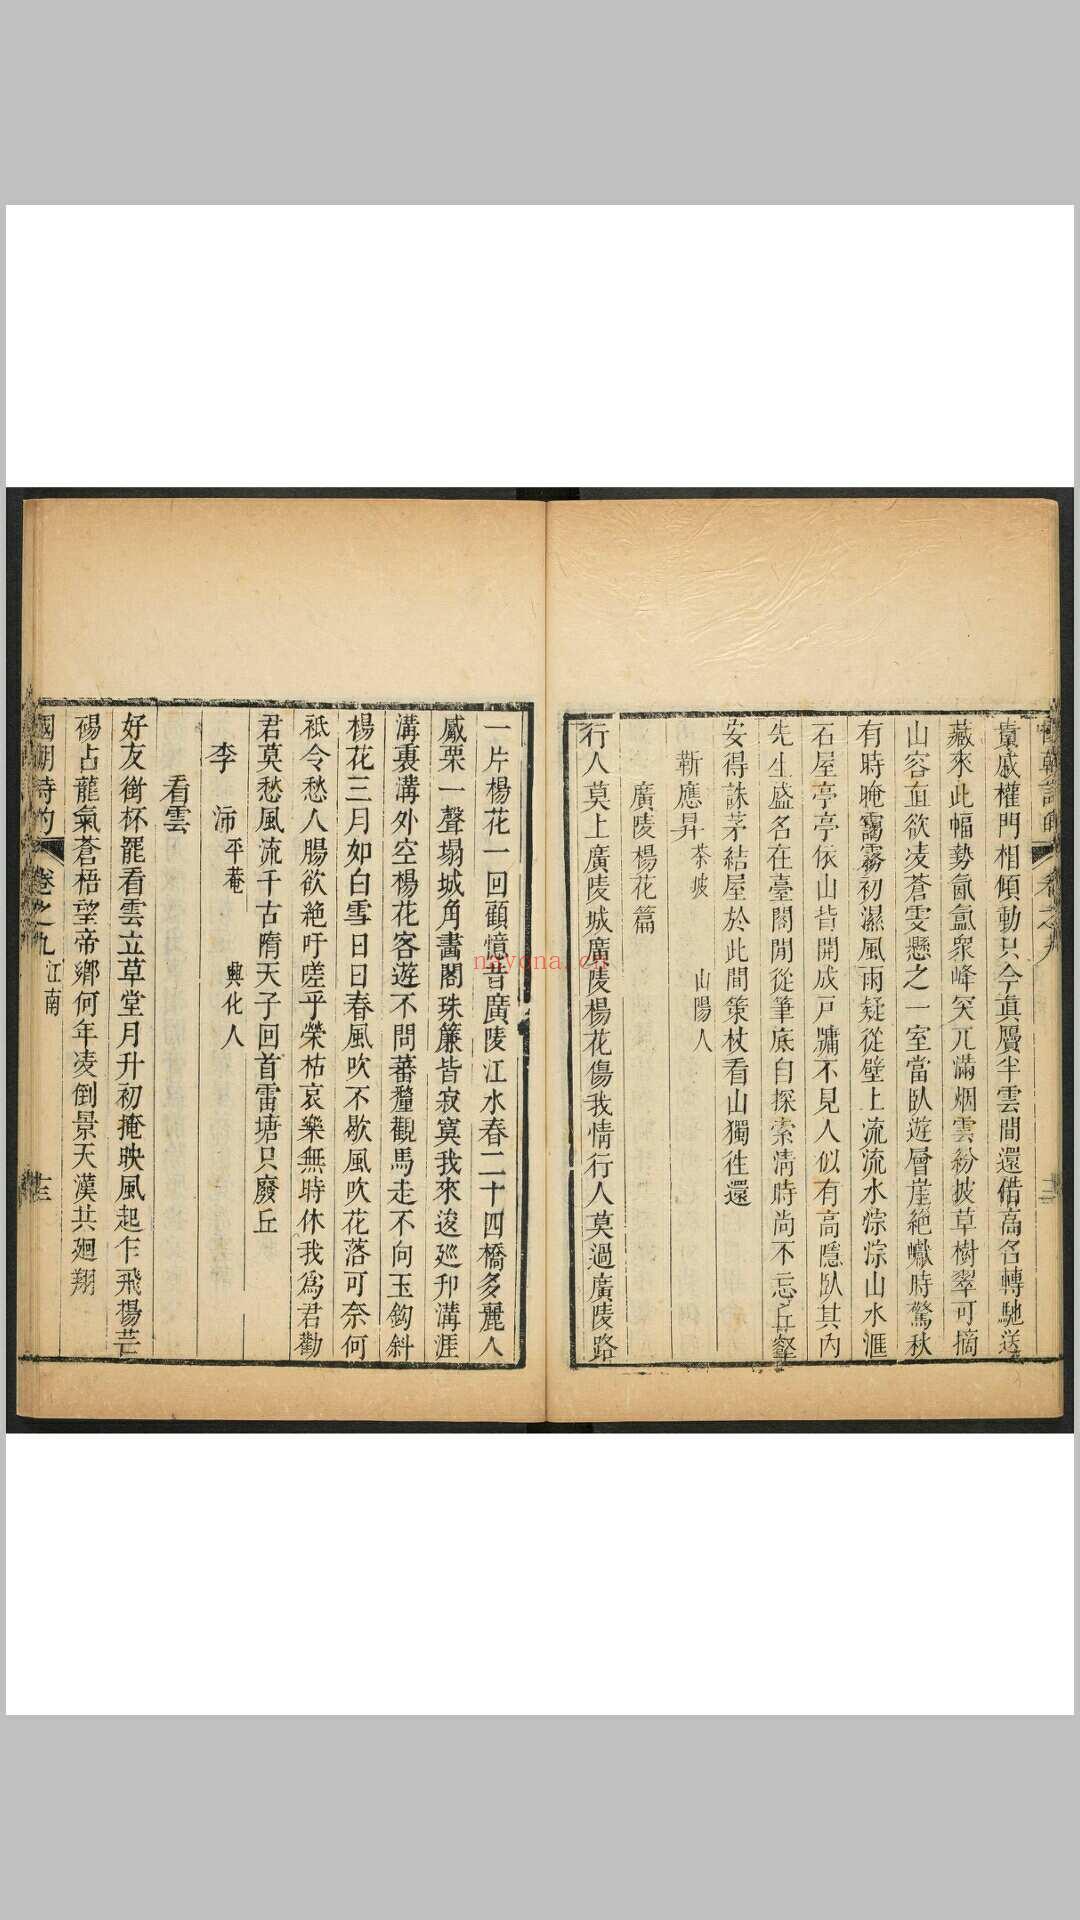 國朝詩的 卷之九
貴戚權門相傾動只今眞贋半雲間還借高名轉馳送
藏來此幅勢氤氳衆峰突兀滿烟雲紛披草樹翠可摘
山容直欲凌蒼雯懸之一室當臥遊層崖絕巘時驚秋
有時晻靄霧初濕風雨疑從壁上流流水淙淙山水滙
石屋亭亭依山背開成戸牖不見人似有高隱臥其內
先生盛名在臺閣閒從筆底自探索淸時尚不忘丘壑
安得誅茅結屋於此間策杖看山獨徃還
靳應昇 茶坡 山陽人
廣陵楊花篇
行人莫上廣陵城廣陵楊花傷我情行人莫過廣陵路
一片楊花一回顧憶昔廣陵江水春二十四橋多麗人
觱栗一聲塌城角畵閣珠簾皆寂寞我來逡廵邗溝涯
溝裏溝外空楊花客遊不問蕃釐觀馬走不向玉鈎斜
楊花三月如白雪日日春風吹不歇風吹花落可奈何
祗令愁人腸欲絶吁嗟乎榮枯哀樂無時休我爲君勸
君莫愁風流千古隋天子回首雷塘只廢丘
李沛 平菴 興化人
看雲
好友銜杯罷看雲立草堂月升初掩映風起乍飛揚芒
碭占龍氣蒼梧望帝鄉何年凌倒景天漢共廻翔
國朝詩的 卷之九 江南 十三
nayona.cn